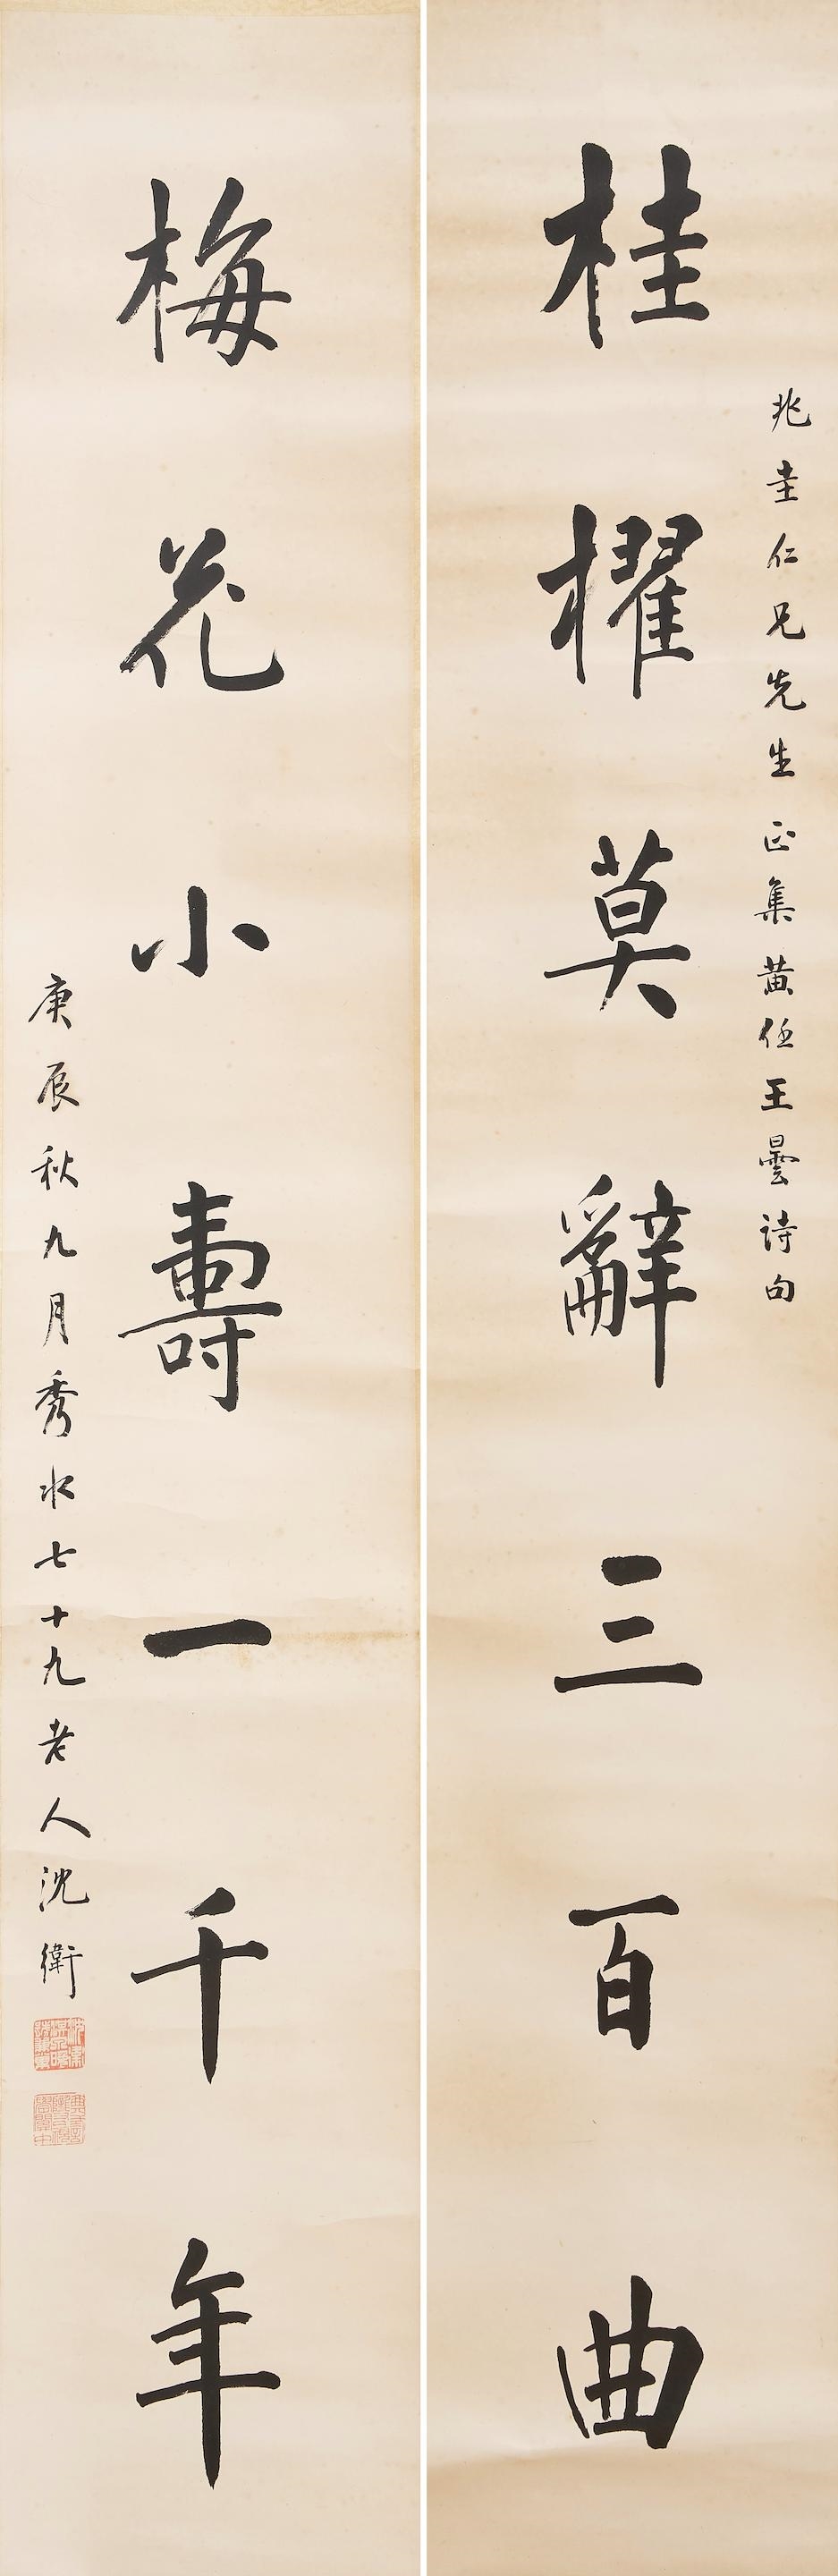 桂櫂莫辭三百曲
兆圭仁兄先生正集黃任王曇诗句
梅花小壽一千年
庚辰秋九月秀水七十九老人沈衛